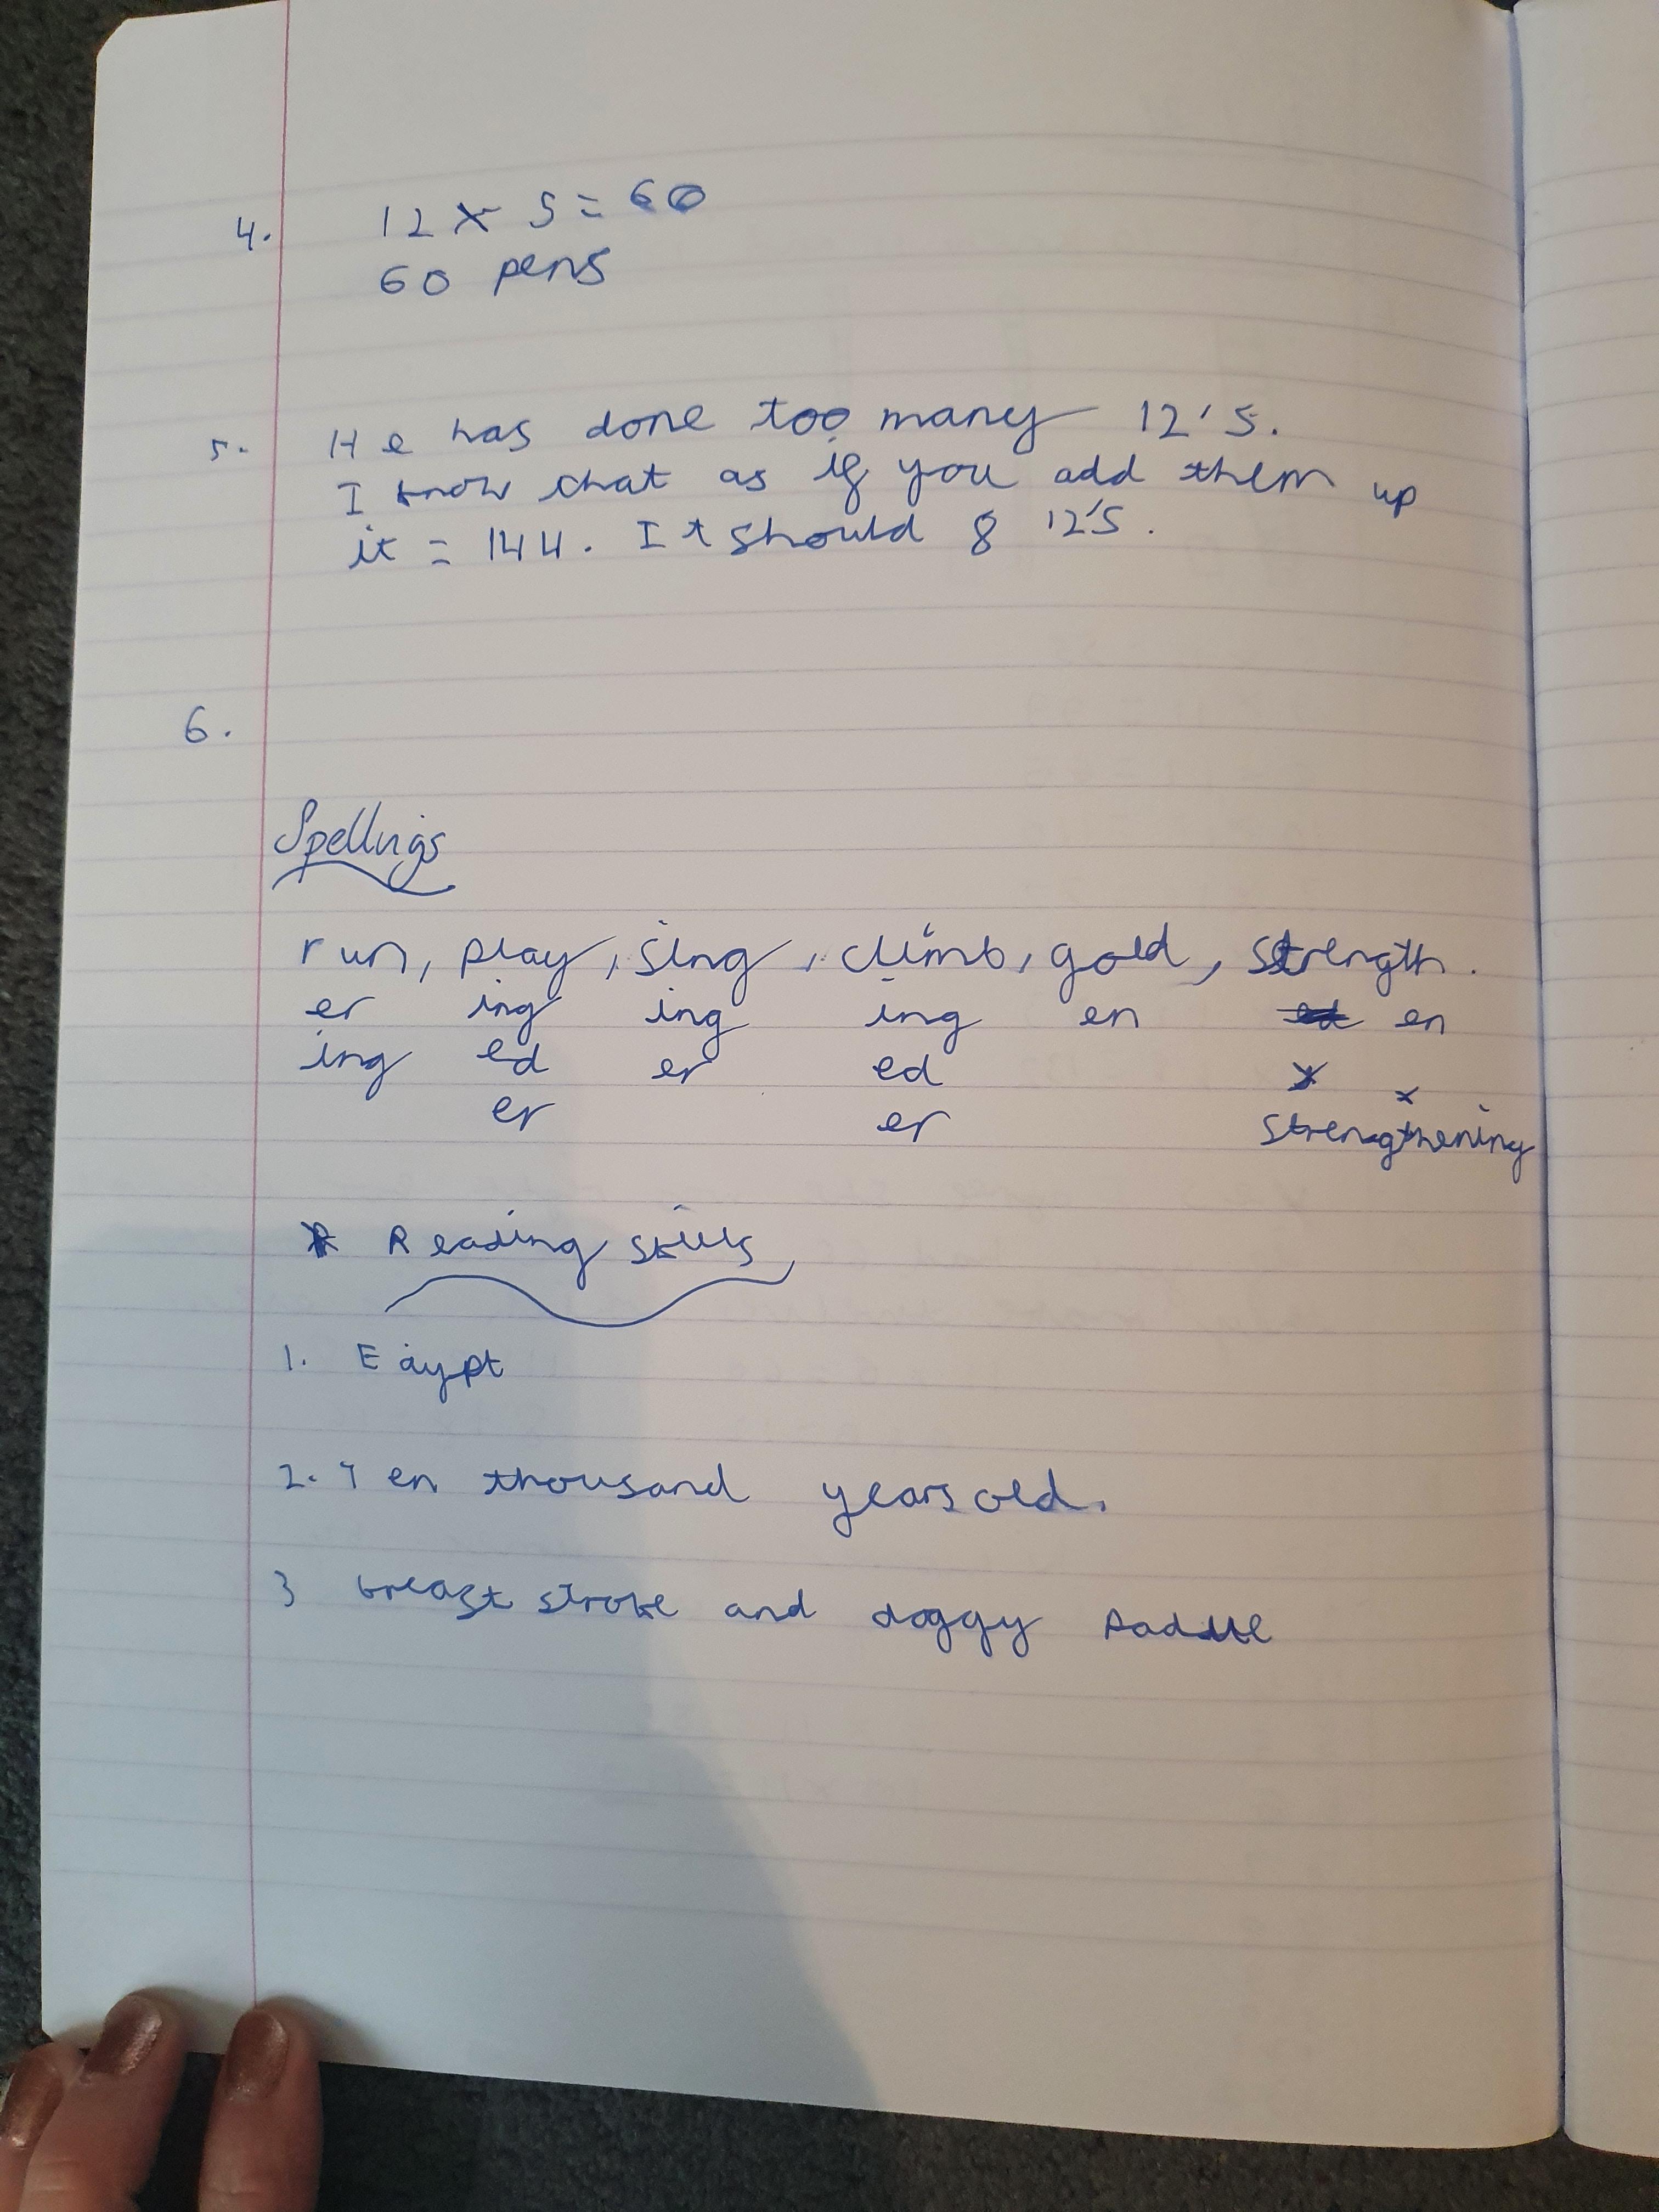 4. 12 x 5 = 60
60 pens
5. He has done too many 12's.
I know that as if you add them up
it = 144. It should 8 12's.
6.
Spellings
run, play, sing, climb, gold, strength.
er ing ing ing en ed en
ing ed er ed x x
er er strengthening
R Reading skills
1. Eaypt
2. Ten thousand years old.
3 breast stroke and doggy paddle